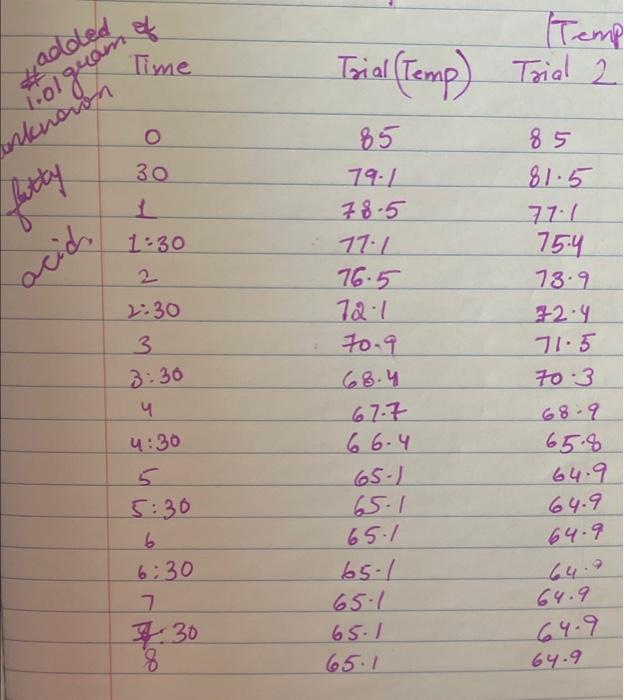 #added of
1.01 gram of
unknown
fatty
acid.
Time Trial (Temp) Trial 2 (Temp
0 85 85
30 79.1 81.5
1 78.5 77.1
1:30 77.1 75.4
2 76.5 73.9
2:30 72.1 72.4
3 70.9 71.5
3:30 68.4 70.3
4 67.7 68.9
4:30 66.4 65.8
5 65.1 64.9
5:30 65.1 64.9
6 65.1 64.9
6:30 65.1 64.9
7 65.1 64.9
7:30 65.1 64.9
8 65.1 64.9